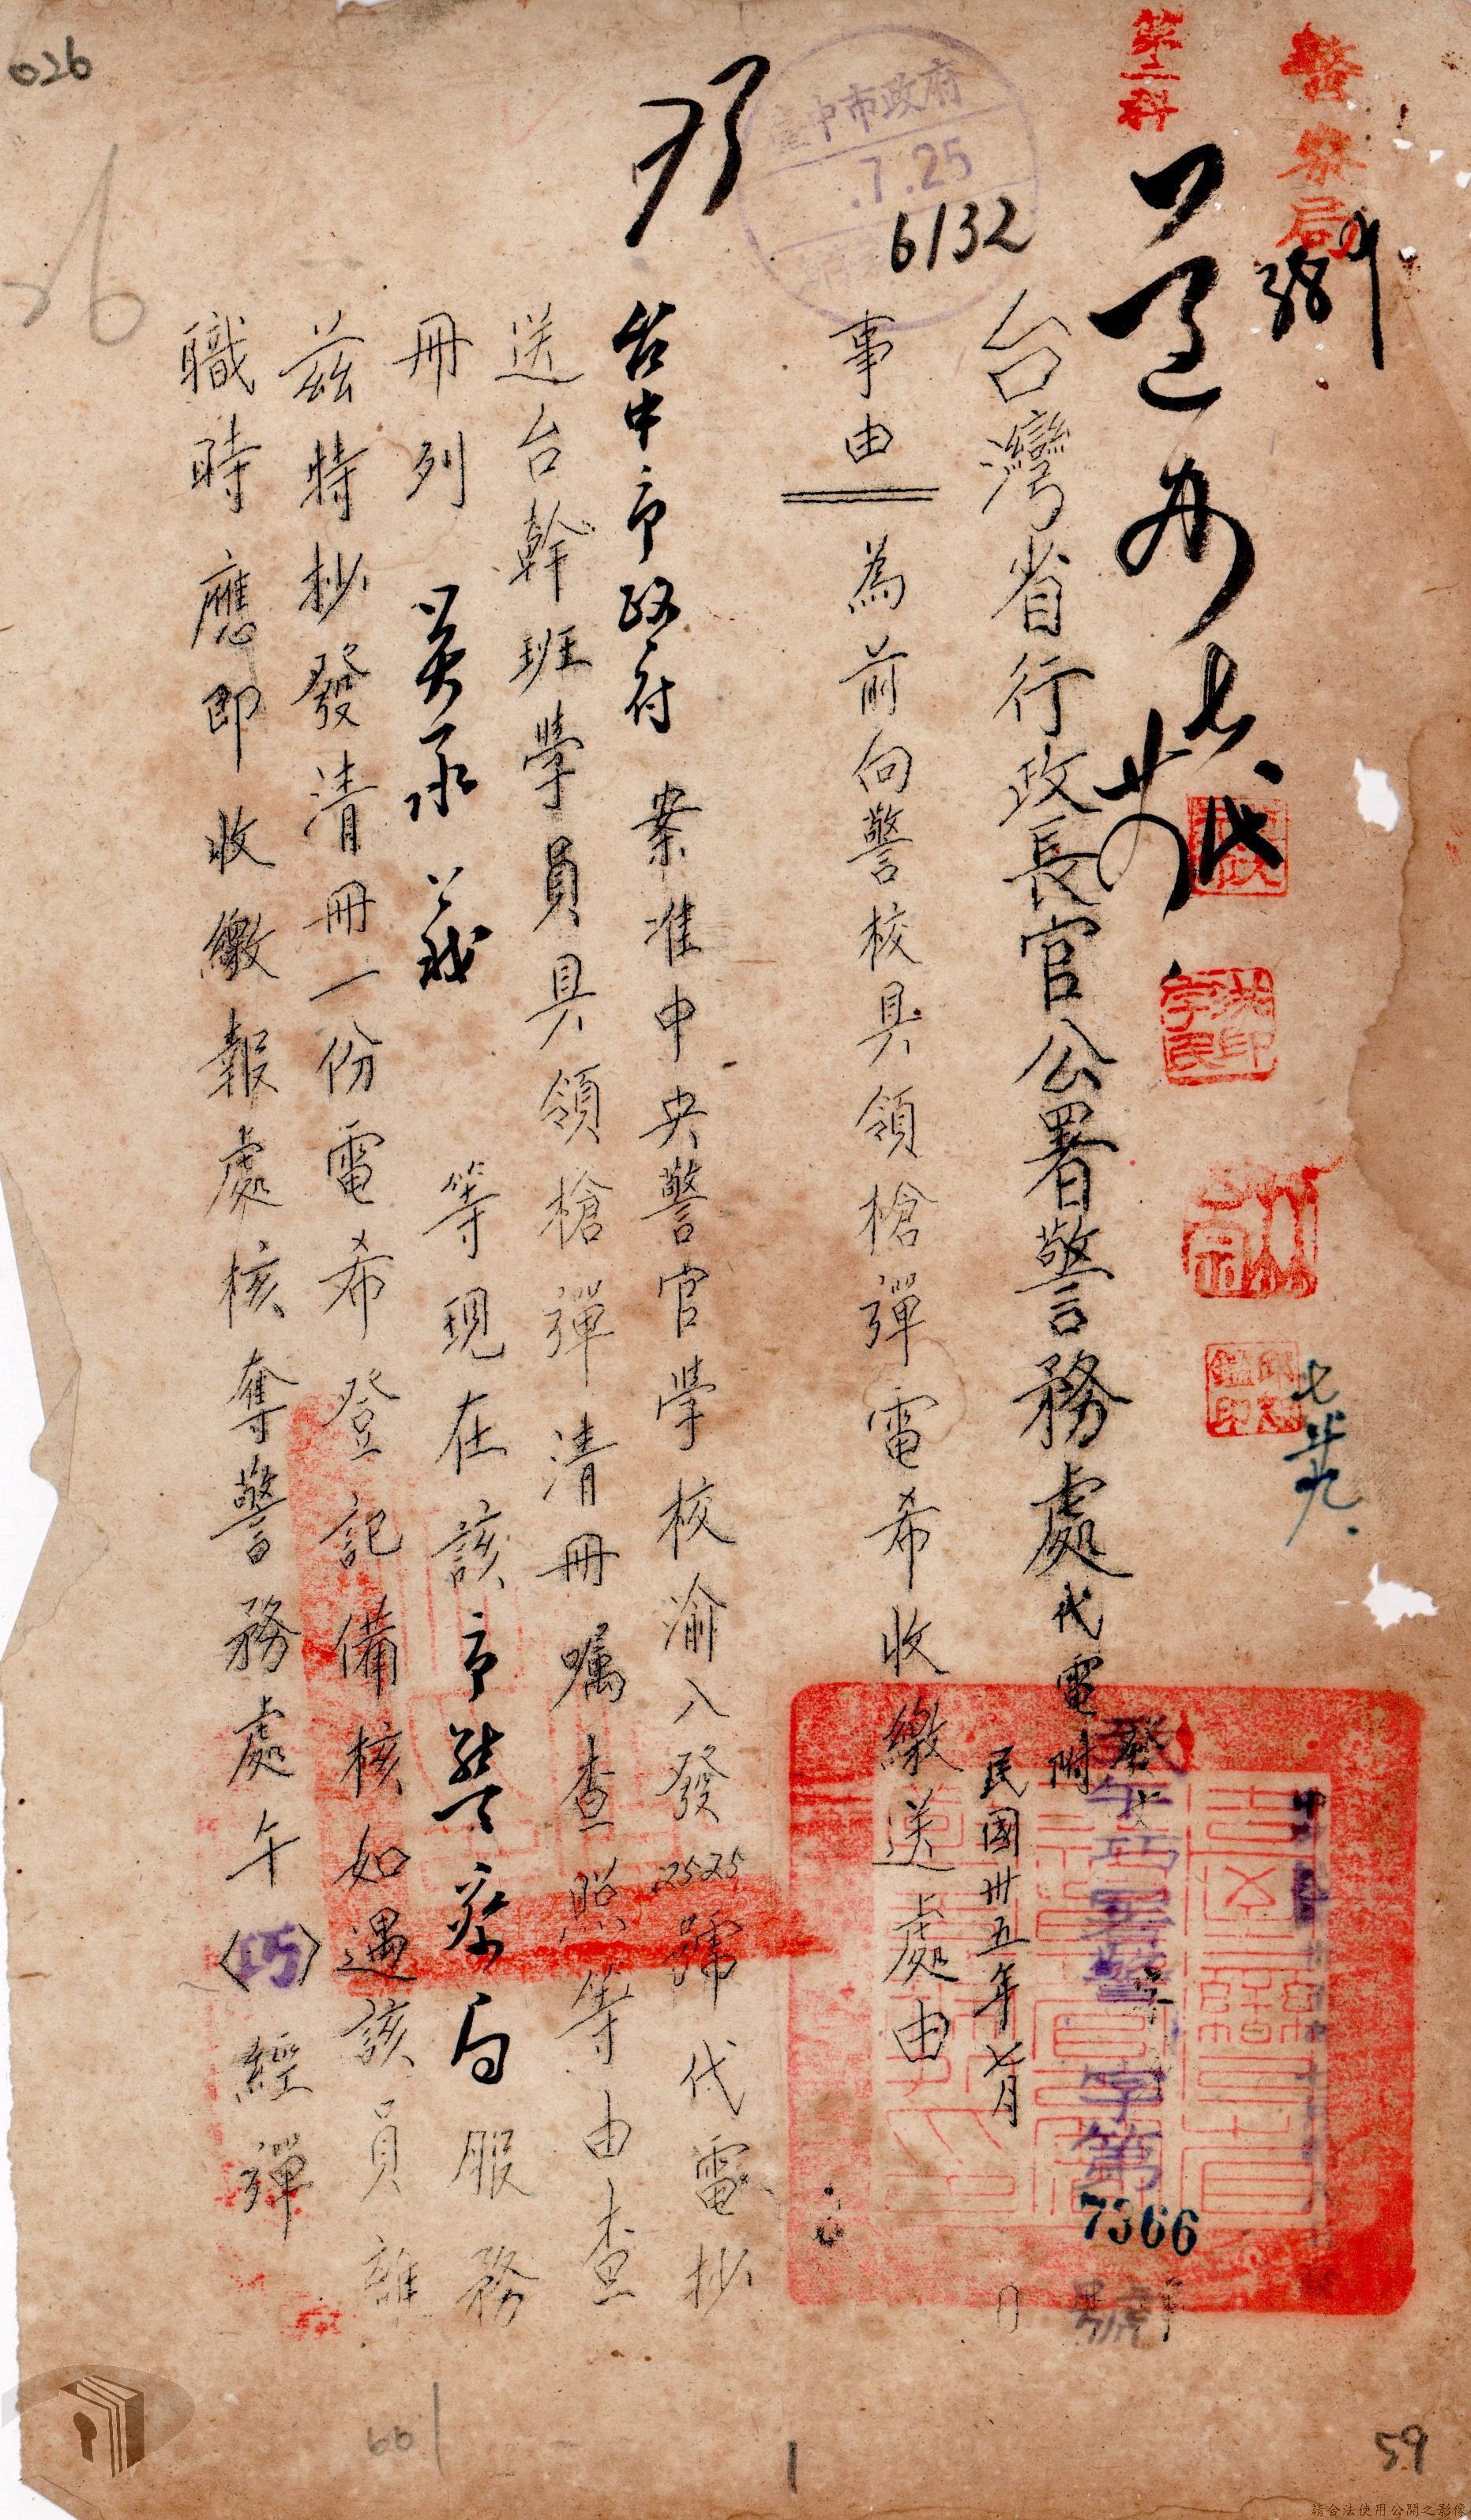 026
警察局
第二科
臺中市政府
7.25
6132
台灣省行政長官公署警務處代電
附
發文
午巧署警字第7366號
民國卅五年七月 日
事由 為前向警校具領槍彈電希收繳送處由
台中市政府 案准中央警官學校渝入發2525號代電抄
送台幹班學員具領槍彈清冊囑查照等由查
冊列 等現在該市警察局服務
茲特抄發清冊一份電希登記備核如遇該員離
職時應即收繳報處核奪警務處午〈巧〉經彈
七廿九
1
59
請合法使用公開之影像